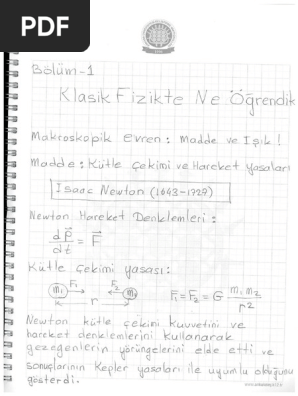 PDF
Bölüm-1
Klasik Fizikte Ne Öğrendik
Makroskopik evren: Madde ve Işık!
Madde: Kütle çekimi ve Hareket yasaları
Isaac Newton (1643-1727)
Newton Hareket Denklemleri:
dP⃗/dt = F⃗
Kütle Çekimi yasası:
m₁ F₁ F₂ m₂ r F₁=F₂= G m₁m₂/r²
Newton kütle çekimi kuvvetini ve
hareket denklemlerini kullanarak
gezegenlerin yörüngelerini elde etti ve
sonuçlarının Kepler yasaları ile uyumlu olduğunu
gösterdi.